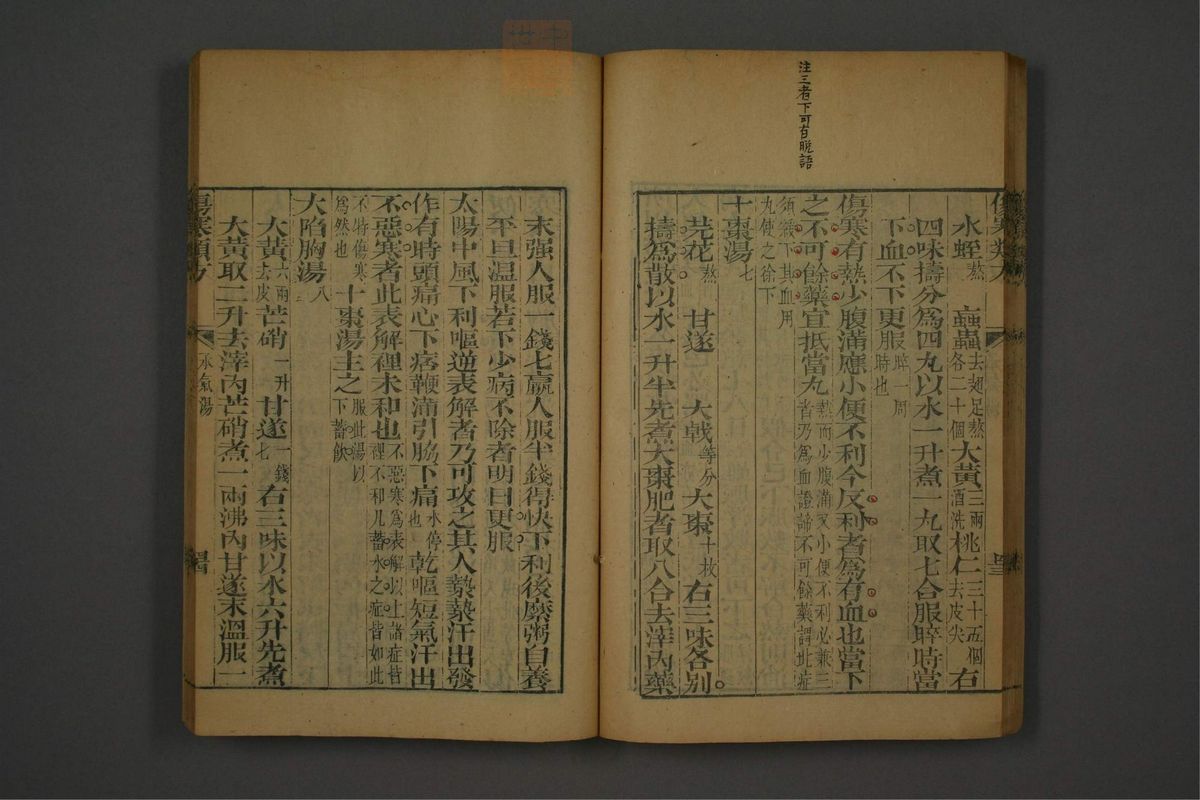 注三者下可有脫語
水蛭熬 蝱蟲去翅足熬各二十個大黃三兩酒洗桃仁三十五個去皮尖右
四味擣分爲四丸以水一升煮一丸取七合服睟時當
下血不下更服睟一周時也
傷寒有熱少腹滿應小便不利今反利者爲有血也當下
之不可餘藥宜抵當丸熱而少腹滿又小便不利必兼三者乃爲血證諦不可餘藥謂此症
須緩下其血用丸使之徐下
十棗湯七
芫花熬 甘遂 大戟等分大棗十枚右三味各別
擣爲散以水一升半先煮大棗肥者取八合去滓內藥
傷寒類方
末强人服一錢七羸人服半錢得快下利後糜粥自養
平旦温服若下少病不除者明日更服
太陽中風下利嘔逆表解者乃可攻之其人漐漐汗出發
作有時頭痛心下痞鞕滿引脇下痛水停也乾嘔短氣汗出
不惡寒者此表解裡未和也不惡寒爲表解以上諸症皆裡不和凡蓄水之症皆如此
不特傷寒爲然也十棗湯主之服此湯以下蓄飲
大陷胸湯八
大黃六兩去皮芒硝一升甘遂一錢七右三味以水六升先煮
大黃取二升去滓內芒硝煮一兩沸內甘遂末溫服一
傷寒類方
承氣湯